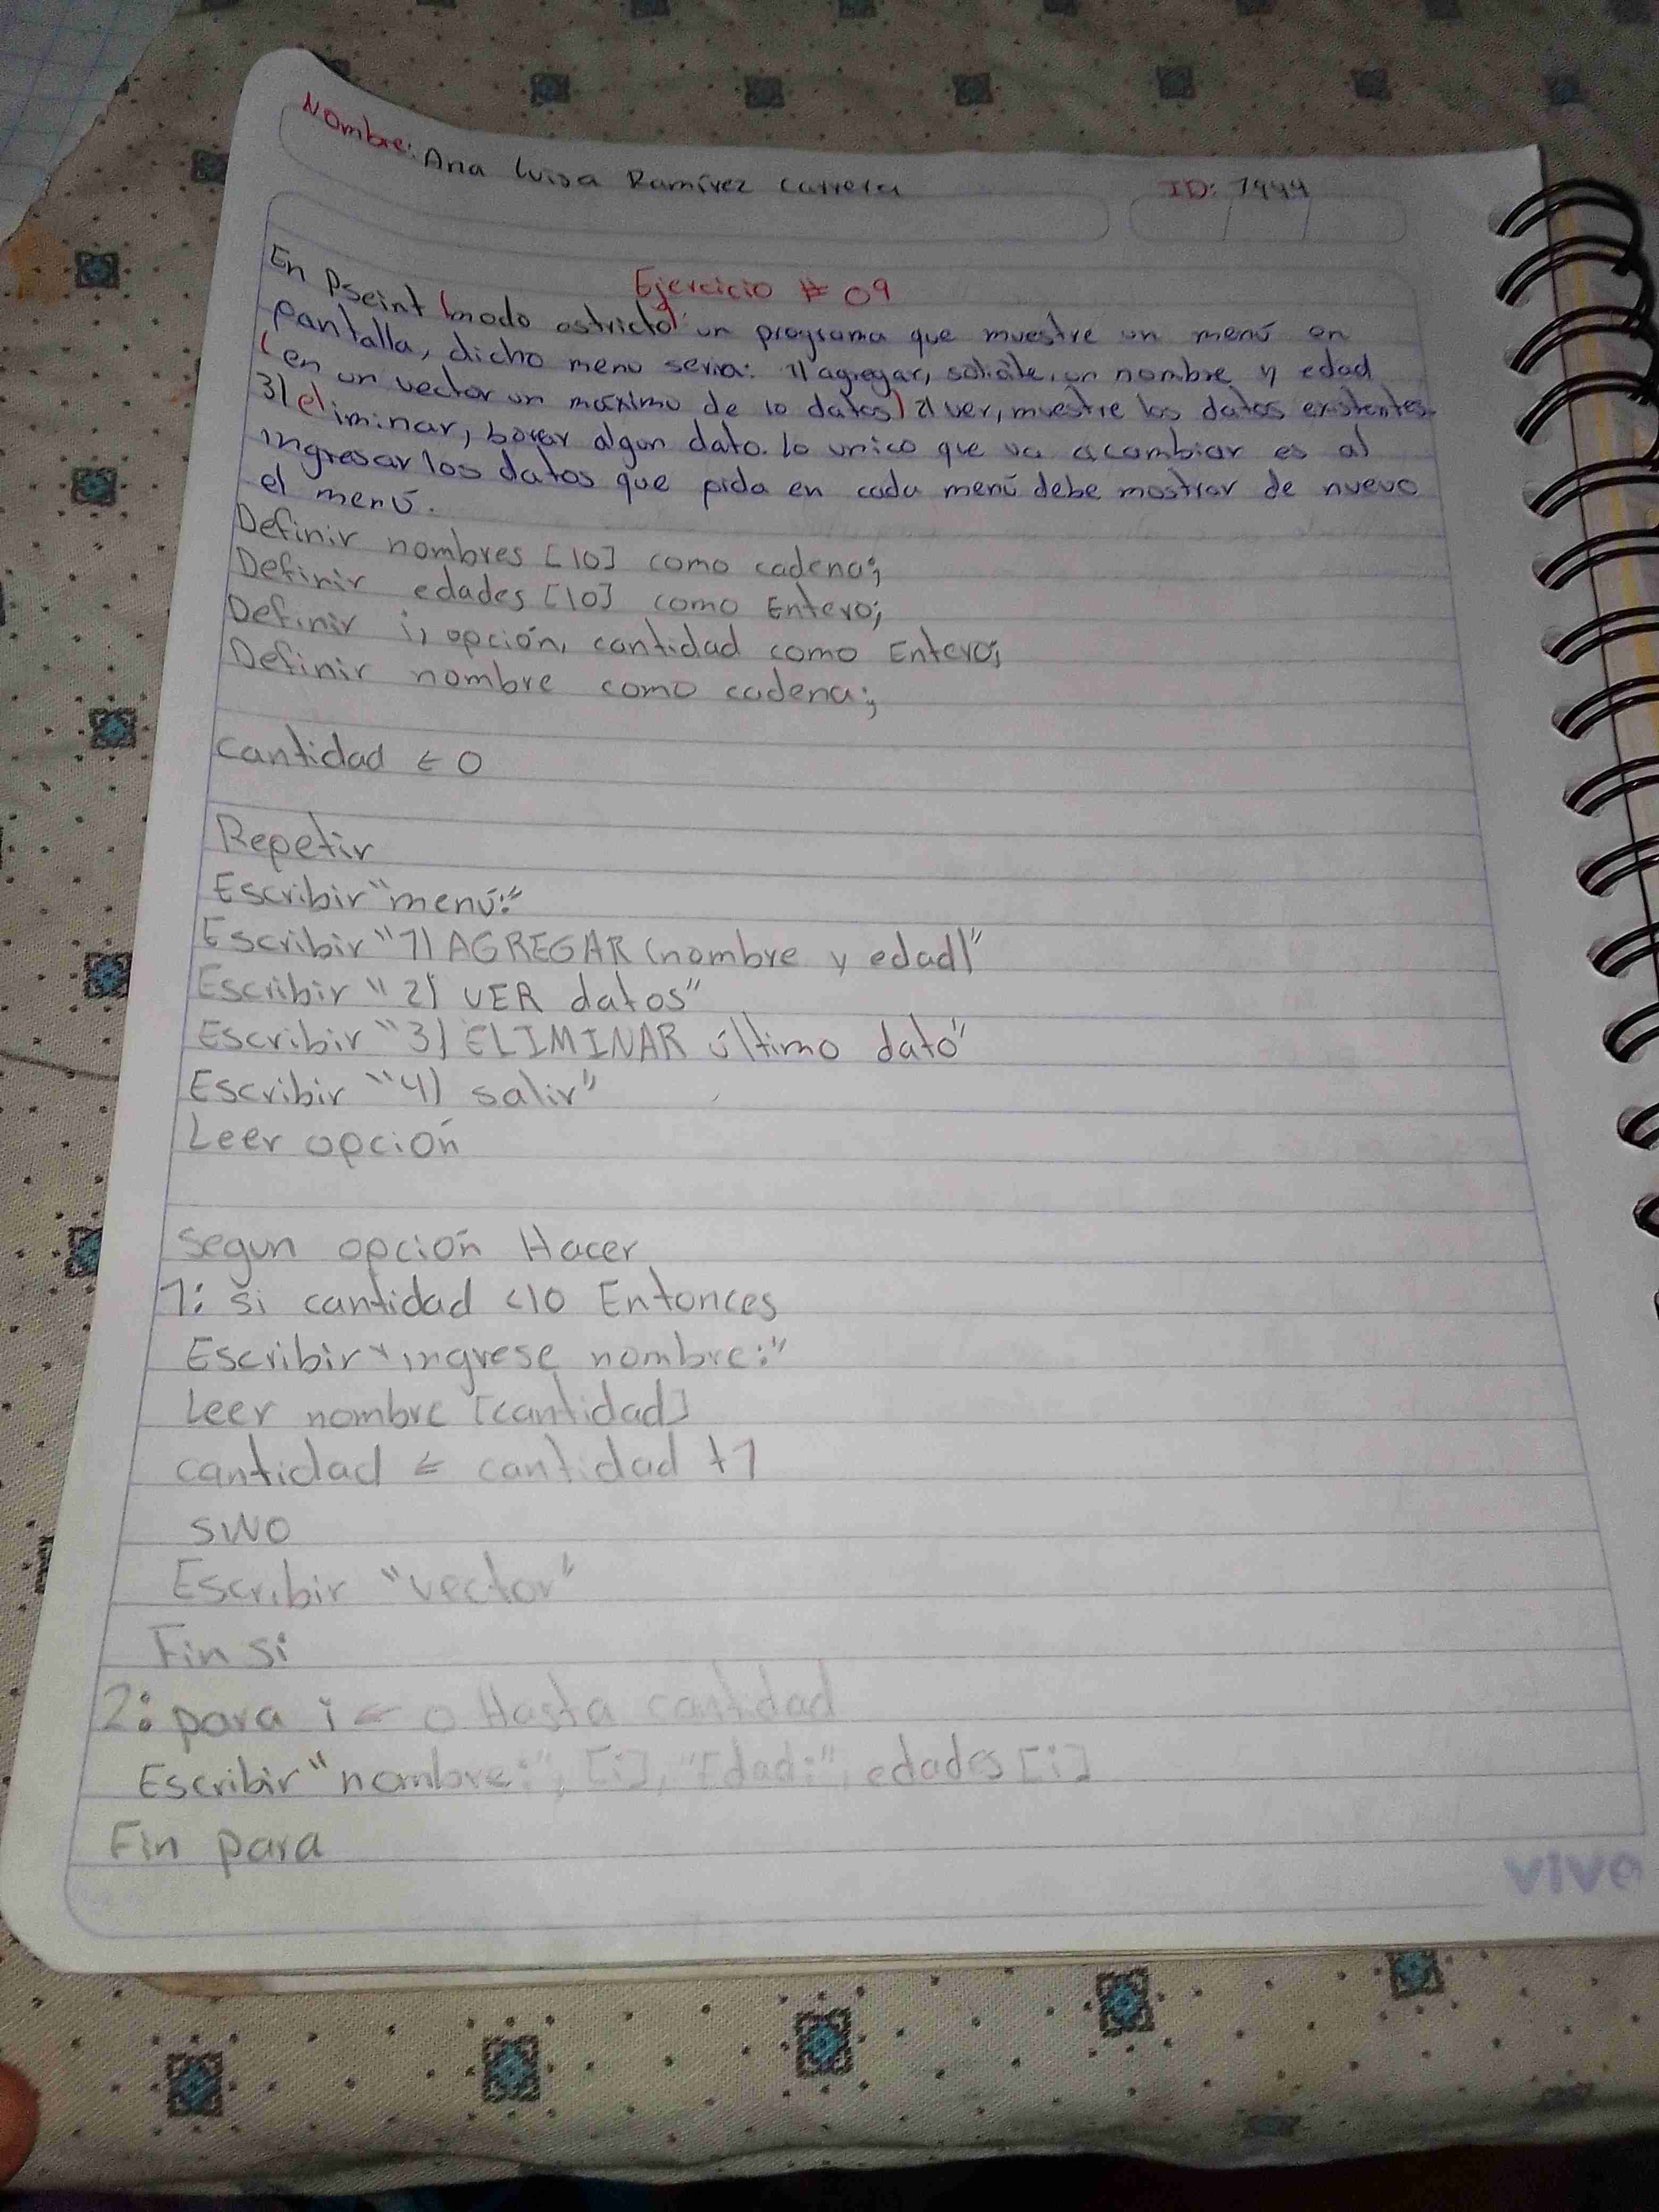 Nombre: Ana Luisa Ramírez Carrera ID: 7444
Ejercicio # 09
En Pseint (modo estricto) un programa que muestre un menú en
pantalla, dicho menu seria: 1) agregar, solicite, un nombre y edad
(en un vector un máximo de 10 datos) 2) ver, muestre los datos existentes.
3) eliminar, borar algun dato. lo unico que va a cambiar es al
ingresar los datos que pida en cada menú debe mostrar de nuevo
el menú.
Definir nombres [10] como cadena;
Definir edades [10] como Entero;
Definir i, opción, cantidad como Entero;
Definir nombre como cadena;
cantidad ← 0
Repetir
Escribir "menú:"
Escribir "1) AGREGAR (nombre y edad)"
Escribir "2) VER datos"
Escribir "3) ELIMINAR último dato"
Escribir "4) salir"
Leer opción
Segun opción Hacer
1: si cantidad <10 Entonces
Escribir "ingrese nombre:"
Leer nombre [cantidad]
cantidad ← cantidad +1
SINO
Escribir "vector"
Fin si
2: para i ← 0 Hasta cantidad
Escribir "nombre:", [i], "Edad:", edades [i]
Fin para
vivo